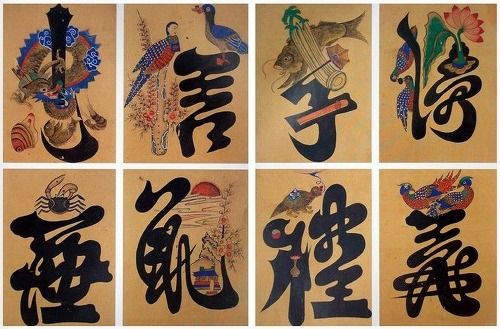 忠 信 孝 悌
廉 恥 禮 義